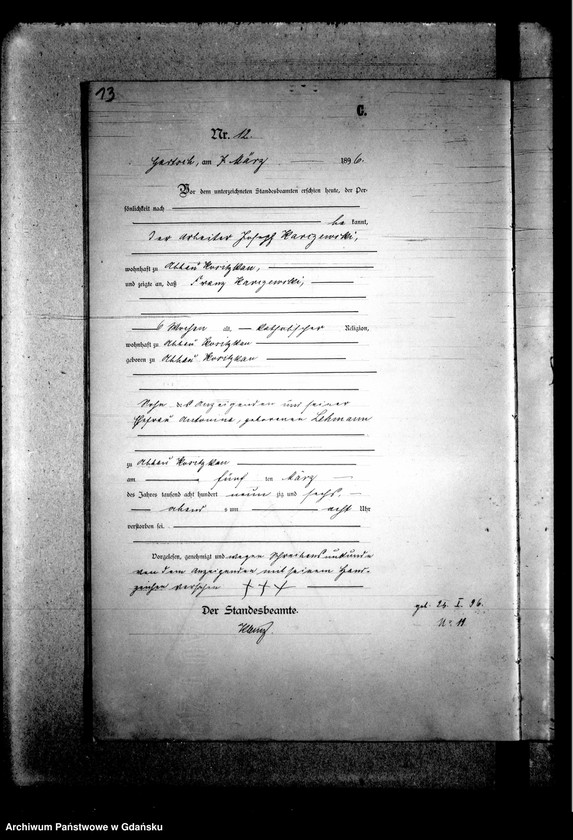 13
C.
Nr. 12.
am 7. März 1896.
Vor dem unterzeichneten Standesbeamten erschien heute, der Per-
sönlichkeit nach
be kannt,
der Arbeiter Joseph Karczewski,
wohnhaft zu Abbau Koritzkau,
und zeigte an, daß Franz Karczewski,
6 Wochen alt, katholischer Religion,
wohnhaft zu Abbau Koritzkau
geboren zu Abbau Koritzkau
Sohn des Anzeigenden und seiner
Ehefrau Antonina, geborenen Lehmann
zu Abbau Koritzkau
am fünf ten März
des Jahres tausend acht hundert neun zig und sechs
abends um acht Uhr
verstorben sei.
Vorgelesen, genehmigt und wegen Schreibensunkunde
von dem Anzeigenden mit seinem Hand-
zeichen versehen +++
Der Standesbeamte.
geb. 24. I. 96.
Nr. 11
Archiwum Państwowe w Gdańsku